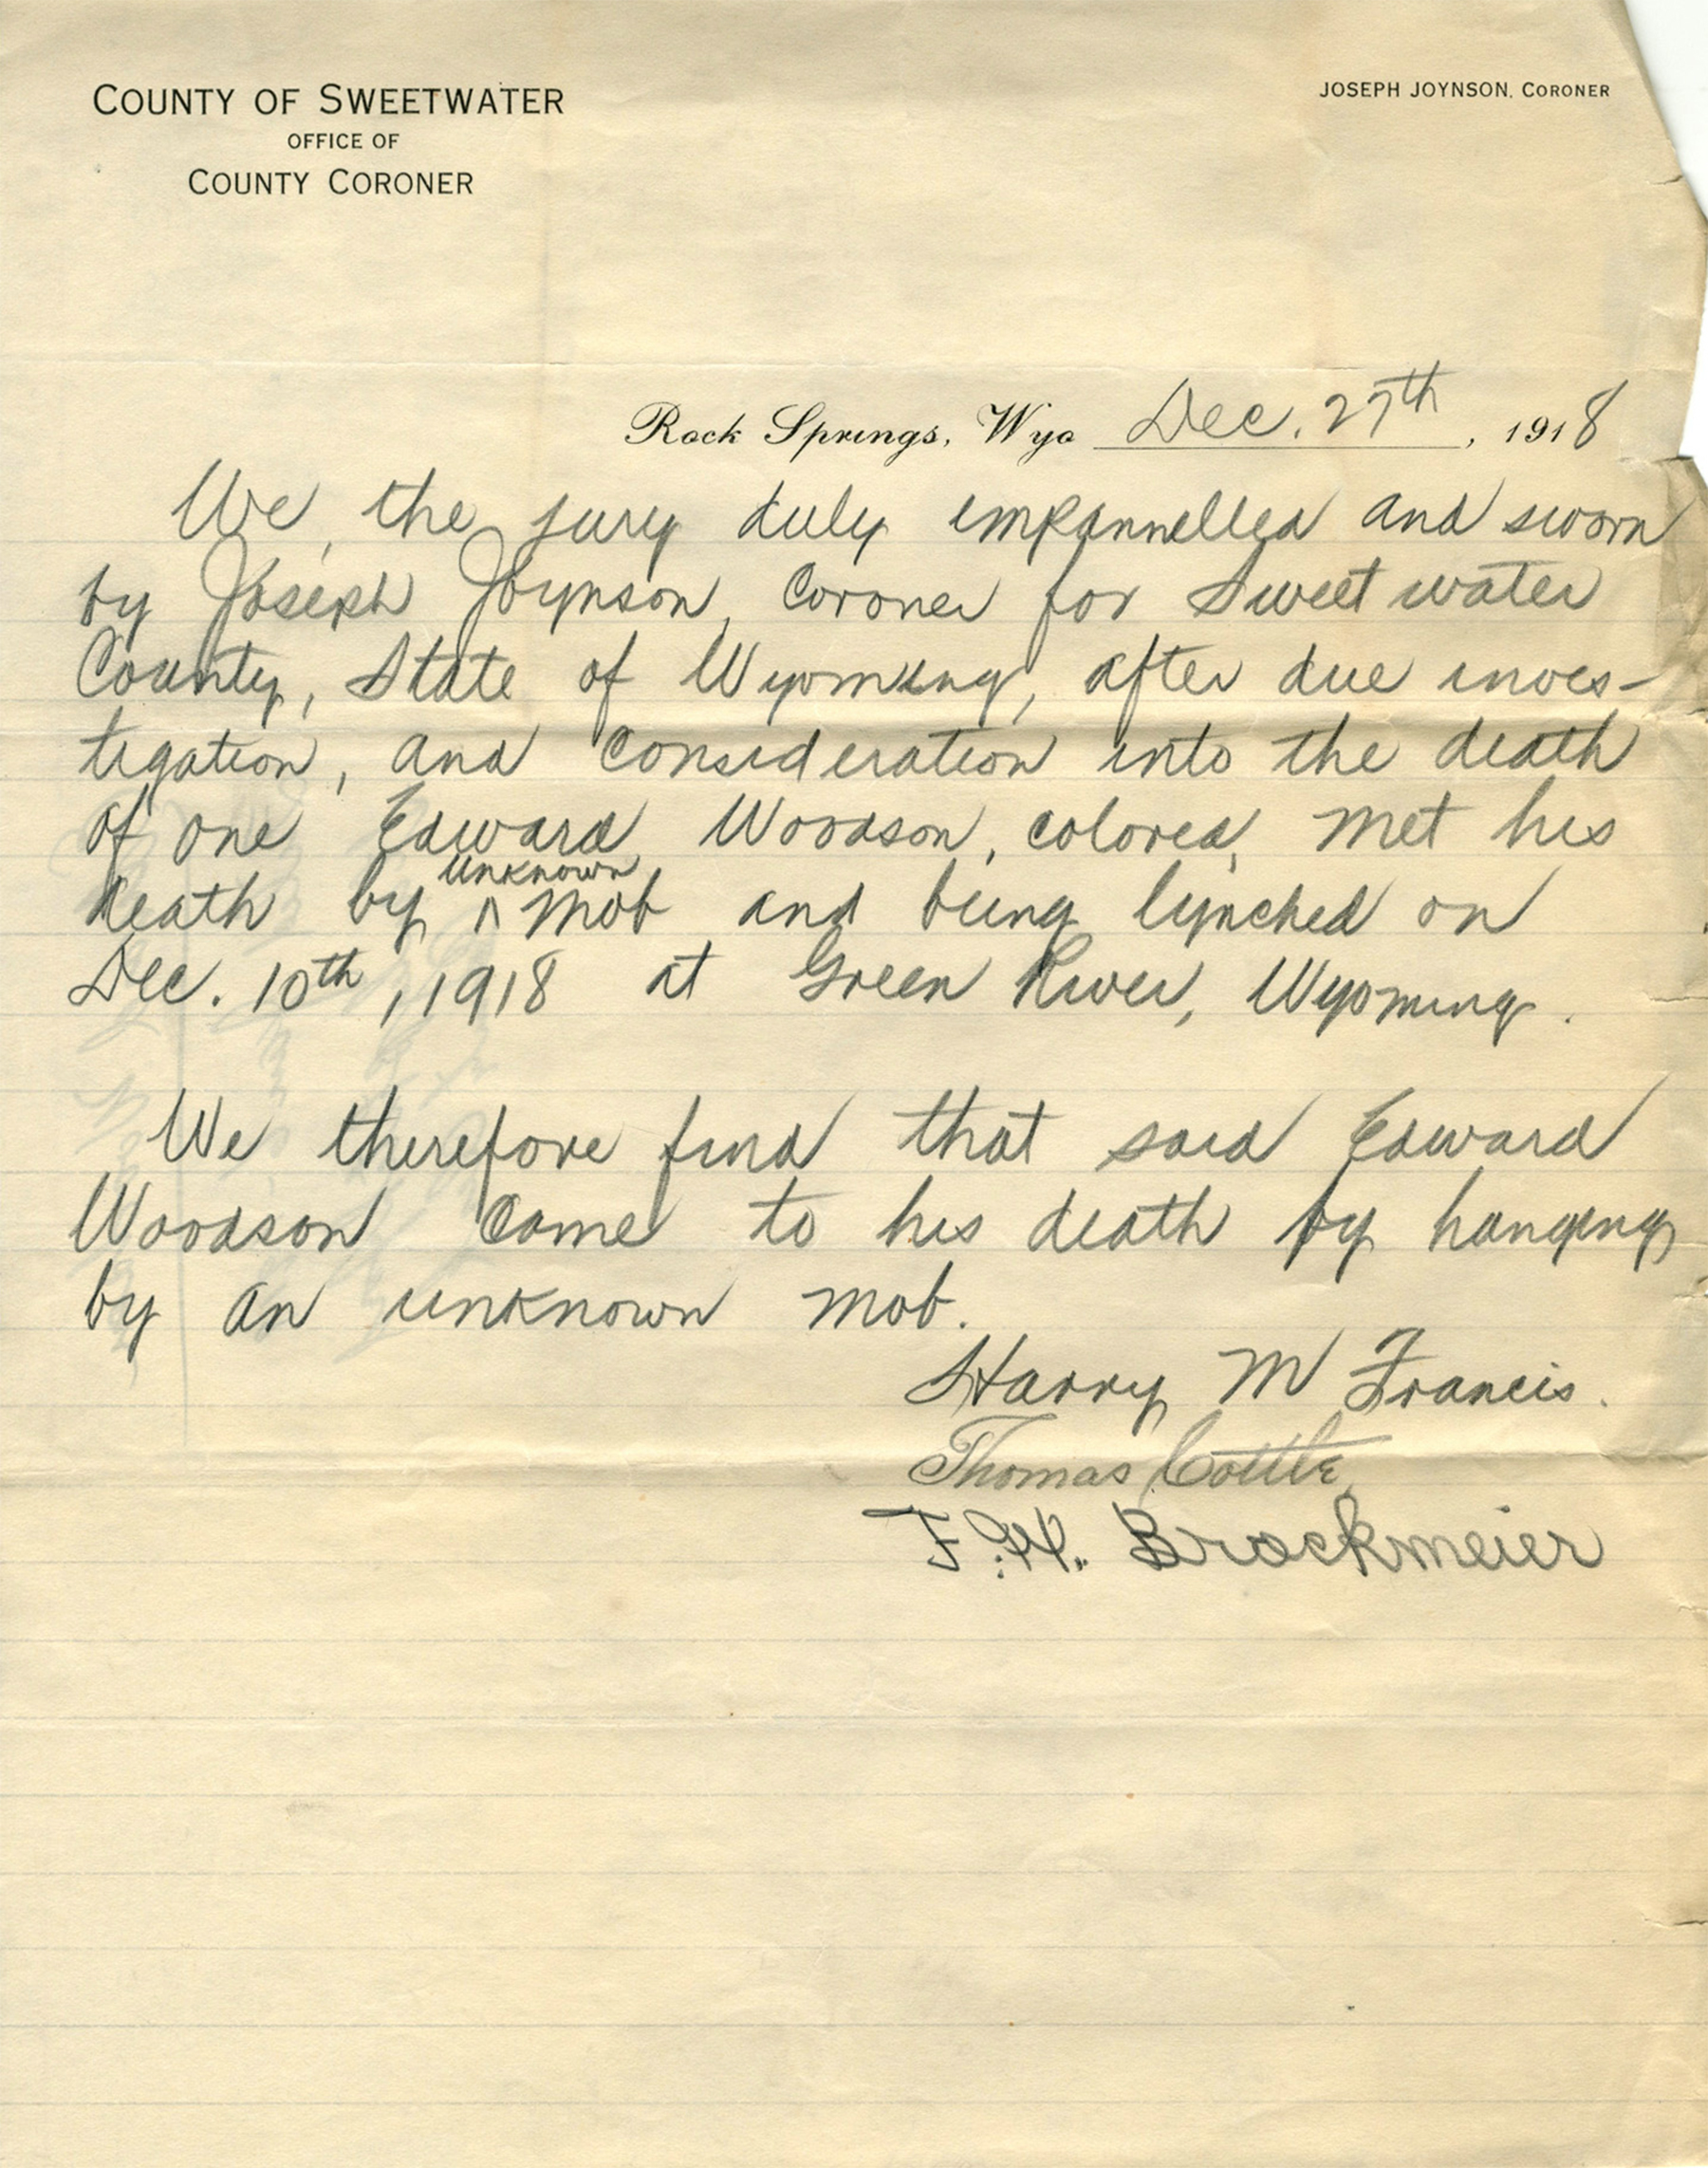 COUNTY OF SWEETWATER
OFFICE OF
COUNTY CORONER
JOSEPH JOYNSON, CORONER
Rock Springs, Wyo Dec. 27th, 1918
We, the jury duly impannelled and sworn
by Joseph Joynson, Coroner for Sweetwater
County, State of Wyoming, after due inves-
tigation, and consideration into the death
of one Edward Woodson, colored, met his
unknown
death by ^ mob and being lynched on
Dec. 10th, 1918 at Green River, Wyoming.
We therefore find that said Edward
Woodson came to his death by hanging
by an unknown mob.
Harry M Francis.
Thomas Cottle
F. H. Brockmeier